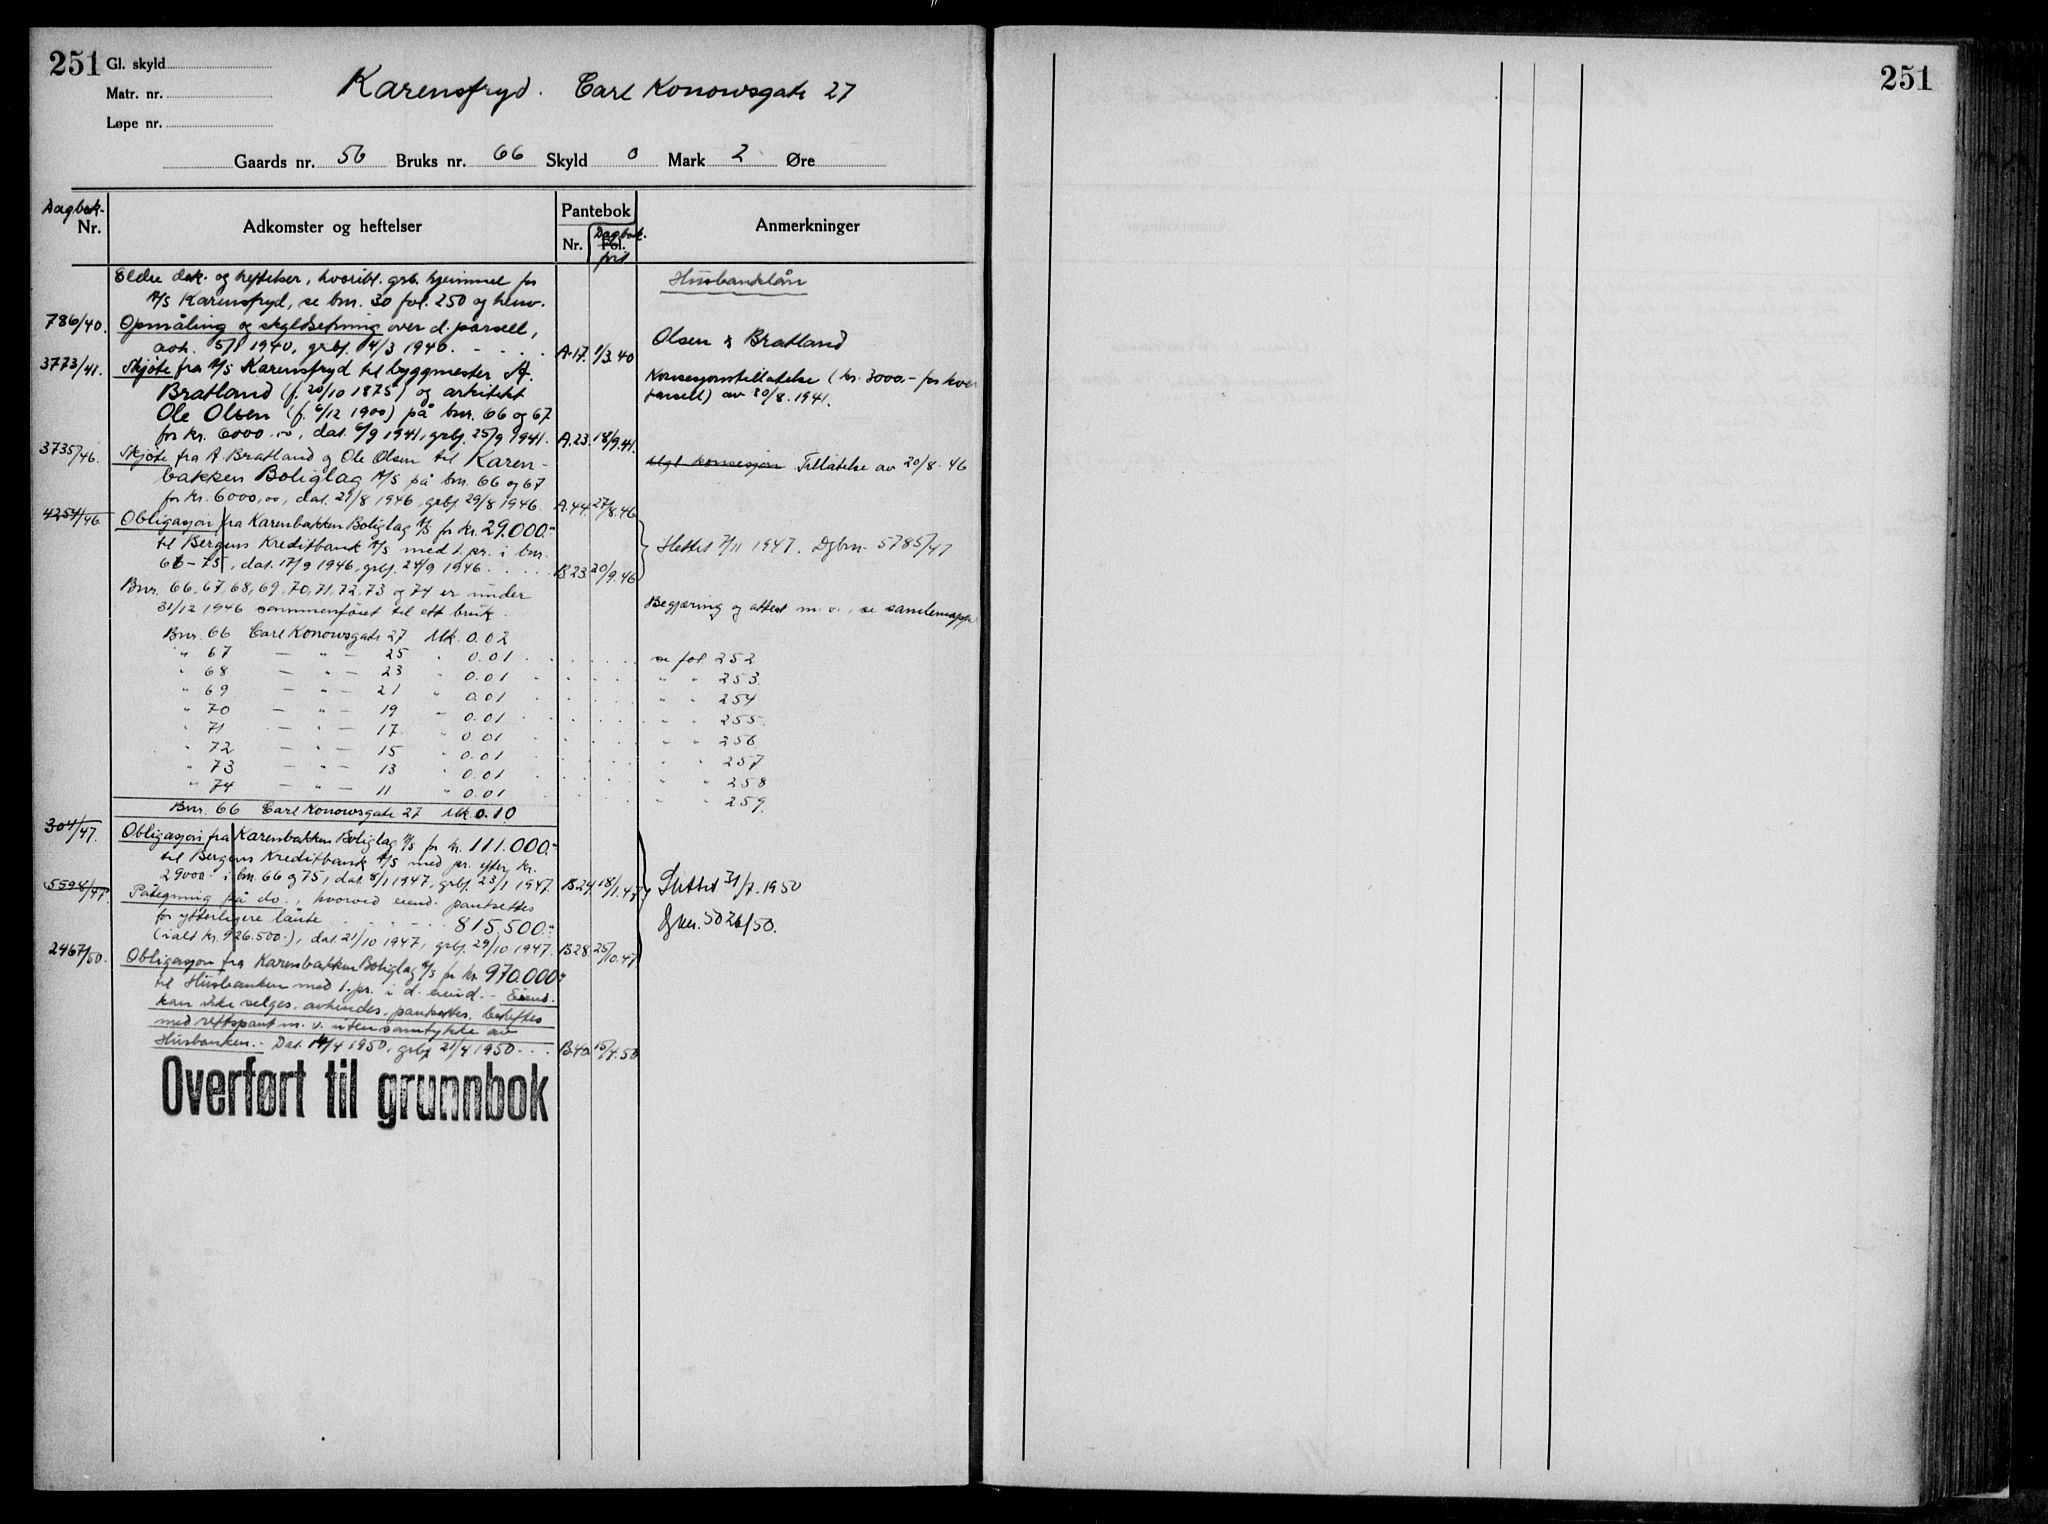 251
Gl. skyld
Matr. nr.
Løpe nr.
Karensfryd. Carl Konowsgate 27
Gaards nr. 56 Bruks nr. 66 Skyld 0 Mark 2 Øre
Dagbok-
Nr.
Adkomster og heftelser
Pantebok
Nr.
Dagbok.
Fol.
ført
Anmerkninger
Eldre dok. og heftelser, hvoribl. grb. hjemmel for
A/S Karensfryd, se bnr. 30 fol. 250 og henv.
Husbanklån
786/40. Opmåling og skyldsetning over d. parsell,
avh. 5/1 1940, grbf. 4/3 1940. A.17. 1/3.40
Olsen & Bratland
3773/41. Skjøte fra A/S Karensfryd til byggmester A.
Bratland (f. 20/10 1875) og arkitekt
Ole Olsen (f. 6/12 1900) på bnr. 66 og 67
for kr. 6000.00, dat. 6/9 1941, grbf. 25/9 1941. A.23. 18/9.41.
Konsesjonstillatelse (kr. 3000.- for hver
parsell) av 30/8.1941.
3735/46. Skjøte fra A. Bratland og Ole Olsen til Karen-
bakken Boliglag A/S på bnr. 66 og 67
for kr. 6000,00, dat. 27/8 1946, grbf. 29/8 1946. A.44. 27/8.46
konsesjon Tillatelse av 20/8.46
4254/46. Obligasjon fra Karenbakken Boliglag A/S for kr. 29.000.-
til Bergens Kreditbank A/S med 1. pr. i bnr.
66-75, dat. 17/9 1946, grbf. 24/9 1946. B.23. 20/9.46
Slettet 7/11 1947. Dgbnr. 5785/47
Bnr. 66, 67, 68, 69, 70, 71, 72, 73 og 74 er under
31/12 1946 sammenføiet til ett bruk.
Begjæring og attest m.v., se samlemappe
Bnr. 66 Carl Konowsgate 27 Mk. 0.02
" 67 — " — 25 " 0.01 se fol. 252
" 68 — " — 23 " 0.01 " " 253
" 69 — " — 21 " 0.01 " " 254
" 70 — " — 19 " 0.01 " " 255
" 71 — " — 17 " 0.01 " " 256
" 72 — " — 15 " 0.01 " " 257
" 73 — " — 13 " 0.01 " " 258
" 74 — " — 11 " 0.01 " " 259
Bnr. 66 Carl Konowsgate 27 Mk. 0.10
304/47. Obligasjon fra Karenbakken Boliglag A/S for kr. 111.000.-
til Bergens Kreditbank A/S med pr. efter kr.
29000.- i bnr. 66 og 75, dat. 8/1 1947, grbf. 23/1 1947. B.24. 18/1.47
Slettet 31/7.1950
5598/47. Påtegning på do., hvorved eiend. pantsettes
for ytterligere lånte 815.500.-
(ialt kr. 926.500.-), dat. 21/10 1947, grbf. 29/10 1947. B.28. 25/10.47
Dgbnr. 5026/50.
2467/50. Obligasjon fra Karenbakken Boliglag A/S for kr. 970.000.-
til Husbanken med 1. pr. i d. eiend. - Eiend.
kan ikke selges, avhendes, pantsettes, beheftes
med rettspant m.v. uten samtykke av
Husbanken. - Dat. 14/4 1950, grbf. 21/4 1950. B.40. 15/4.50
Overført til grunnbok
251